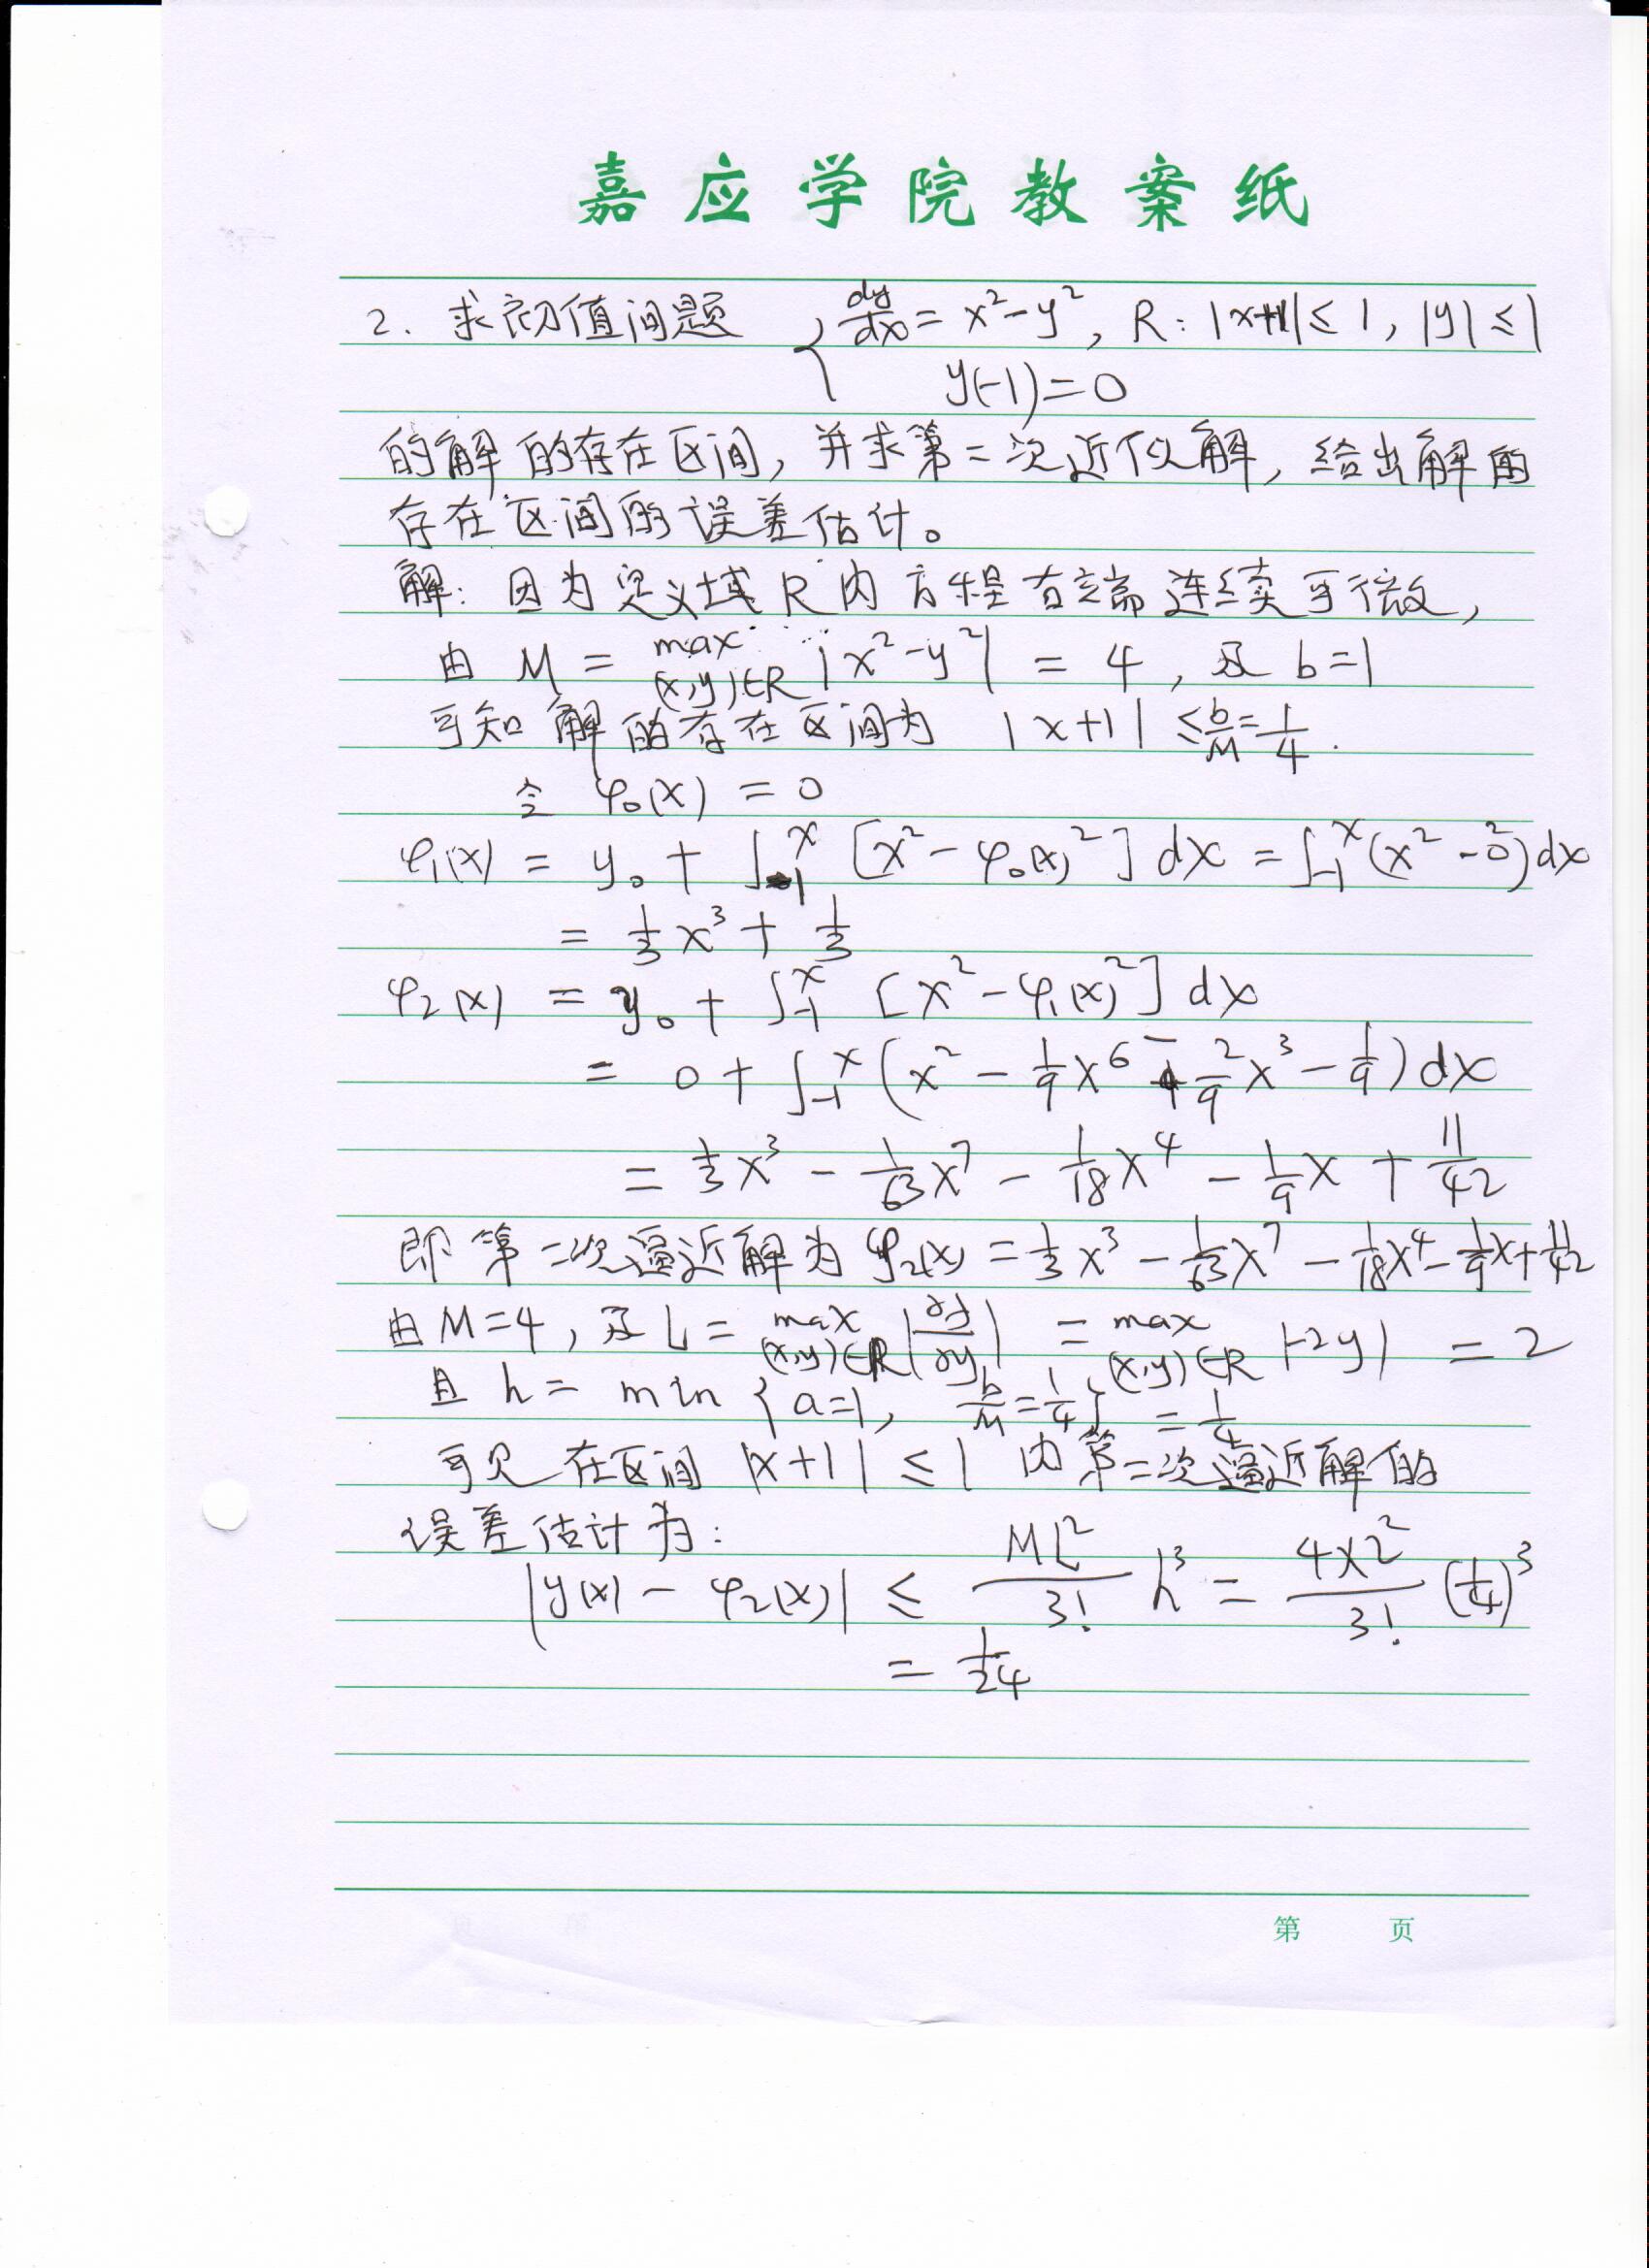 嘉应学院教案纸
2. 求初值问题 { dy/dx = x² - y², R: |x+1| ≤ 1, |y| ≤ 1
y(-1) = 0
的解的存在区间, 并求第二次近似解, 给出解的
存在区间的误差估计。
解: 因为定义域 R 内方程右端连续可微,
由 M = max (x,y)∈R |x² - y²| = 4, 及 b = 1
可知解的存在区间为 |x+1| ≤ b/M = 1/4.
令 φ₀(x) = 0
φ₁(x) = y₀ + ∫₋₁ˣ [x² - φ₀(x)²] dx = ∫₋₁ˣ (x² - 0²) dx
= 1/3 x³ + 1/3
φ₂(x) = y₀ + ∫₋₁ˣ [x² - φ₁(x)²] dx
= 0 + ∫₋₁ˣ (x² - 1/9 x⁶ - 2/9 x³ - 1/9) dx
= 1/3 x³ - 1/63 x⁷ - 1/18 x⁴ - 1/9 x + 11/42
即第二次逼近解为 φ₂(x) = 1/3 x³ - 1/63 x⁷ - 1/18 x⁴ - 1/9 x + 11/42
由 M = 4, 及 L = max (x,y)∈R |∂f/∂y| = max (x,y)∈R |-2y| = 2
且 h = min { a = 1, b/M = 1/4 } = 1/4
可见在区间 |x+1| ≤ 1 内第二次逼近解的
误差估计为:
|y(x) - φ₂(x)| ≤ ML²/3! h³ = 4×2²/3! (1/4)³
= 1/24
第 页